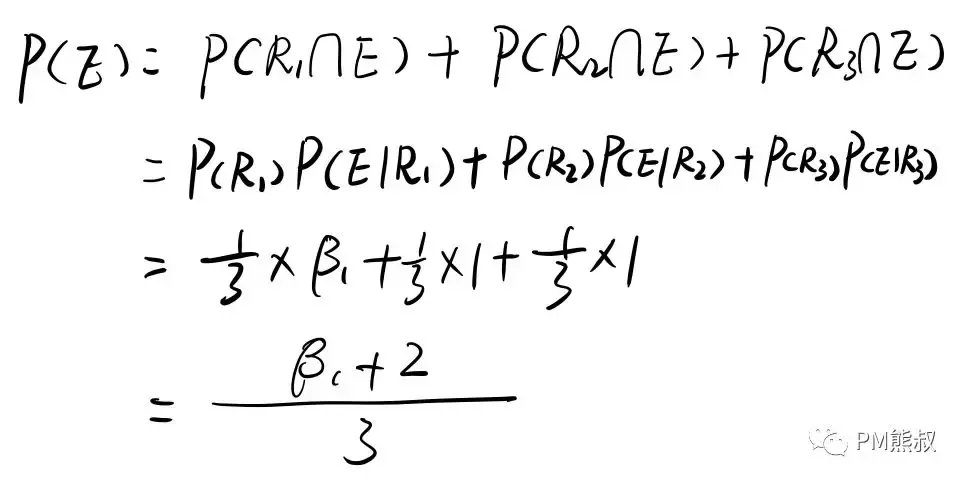 P(E) = P(R₁∩E) + P(R₂∩E) + P(R₃∩E)
= P(R₁)P(E|R₁) + P(R₂)P(E|R₂) + P(R₃)P(E|R₃)
= 1/3 × β₁ + 1/3 × 1 + 1/3 × 1
= (β₁ + 2)/3
PM熊叔